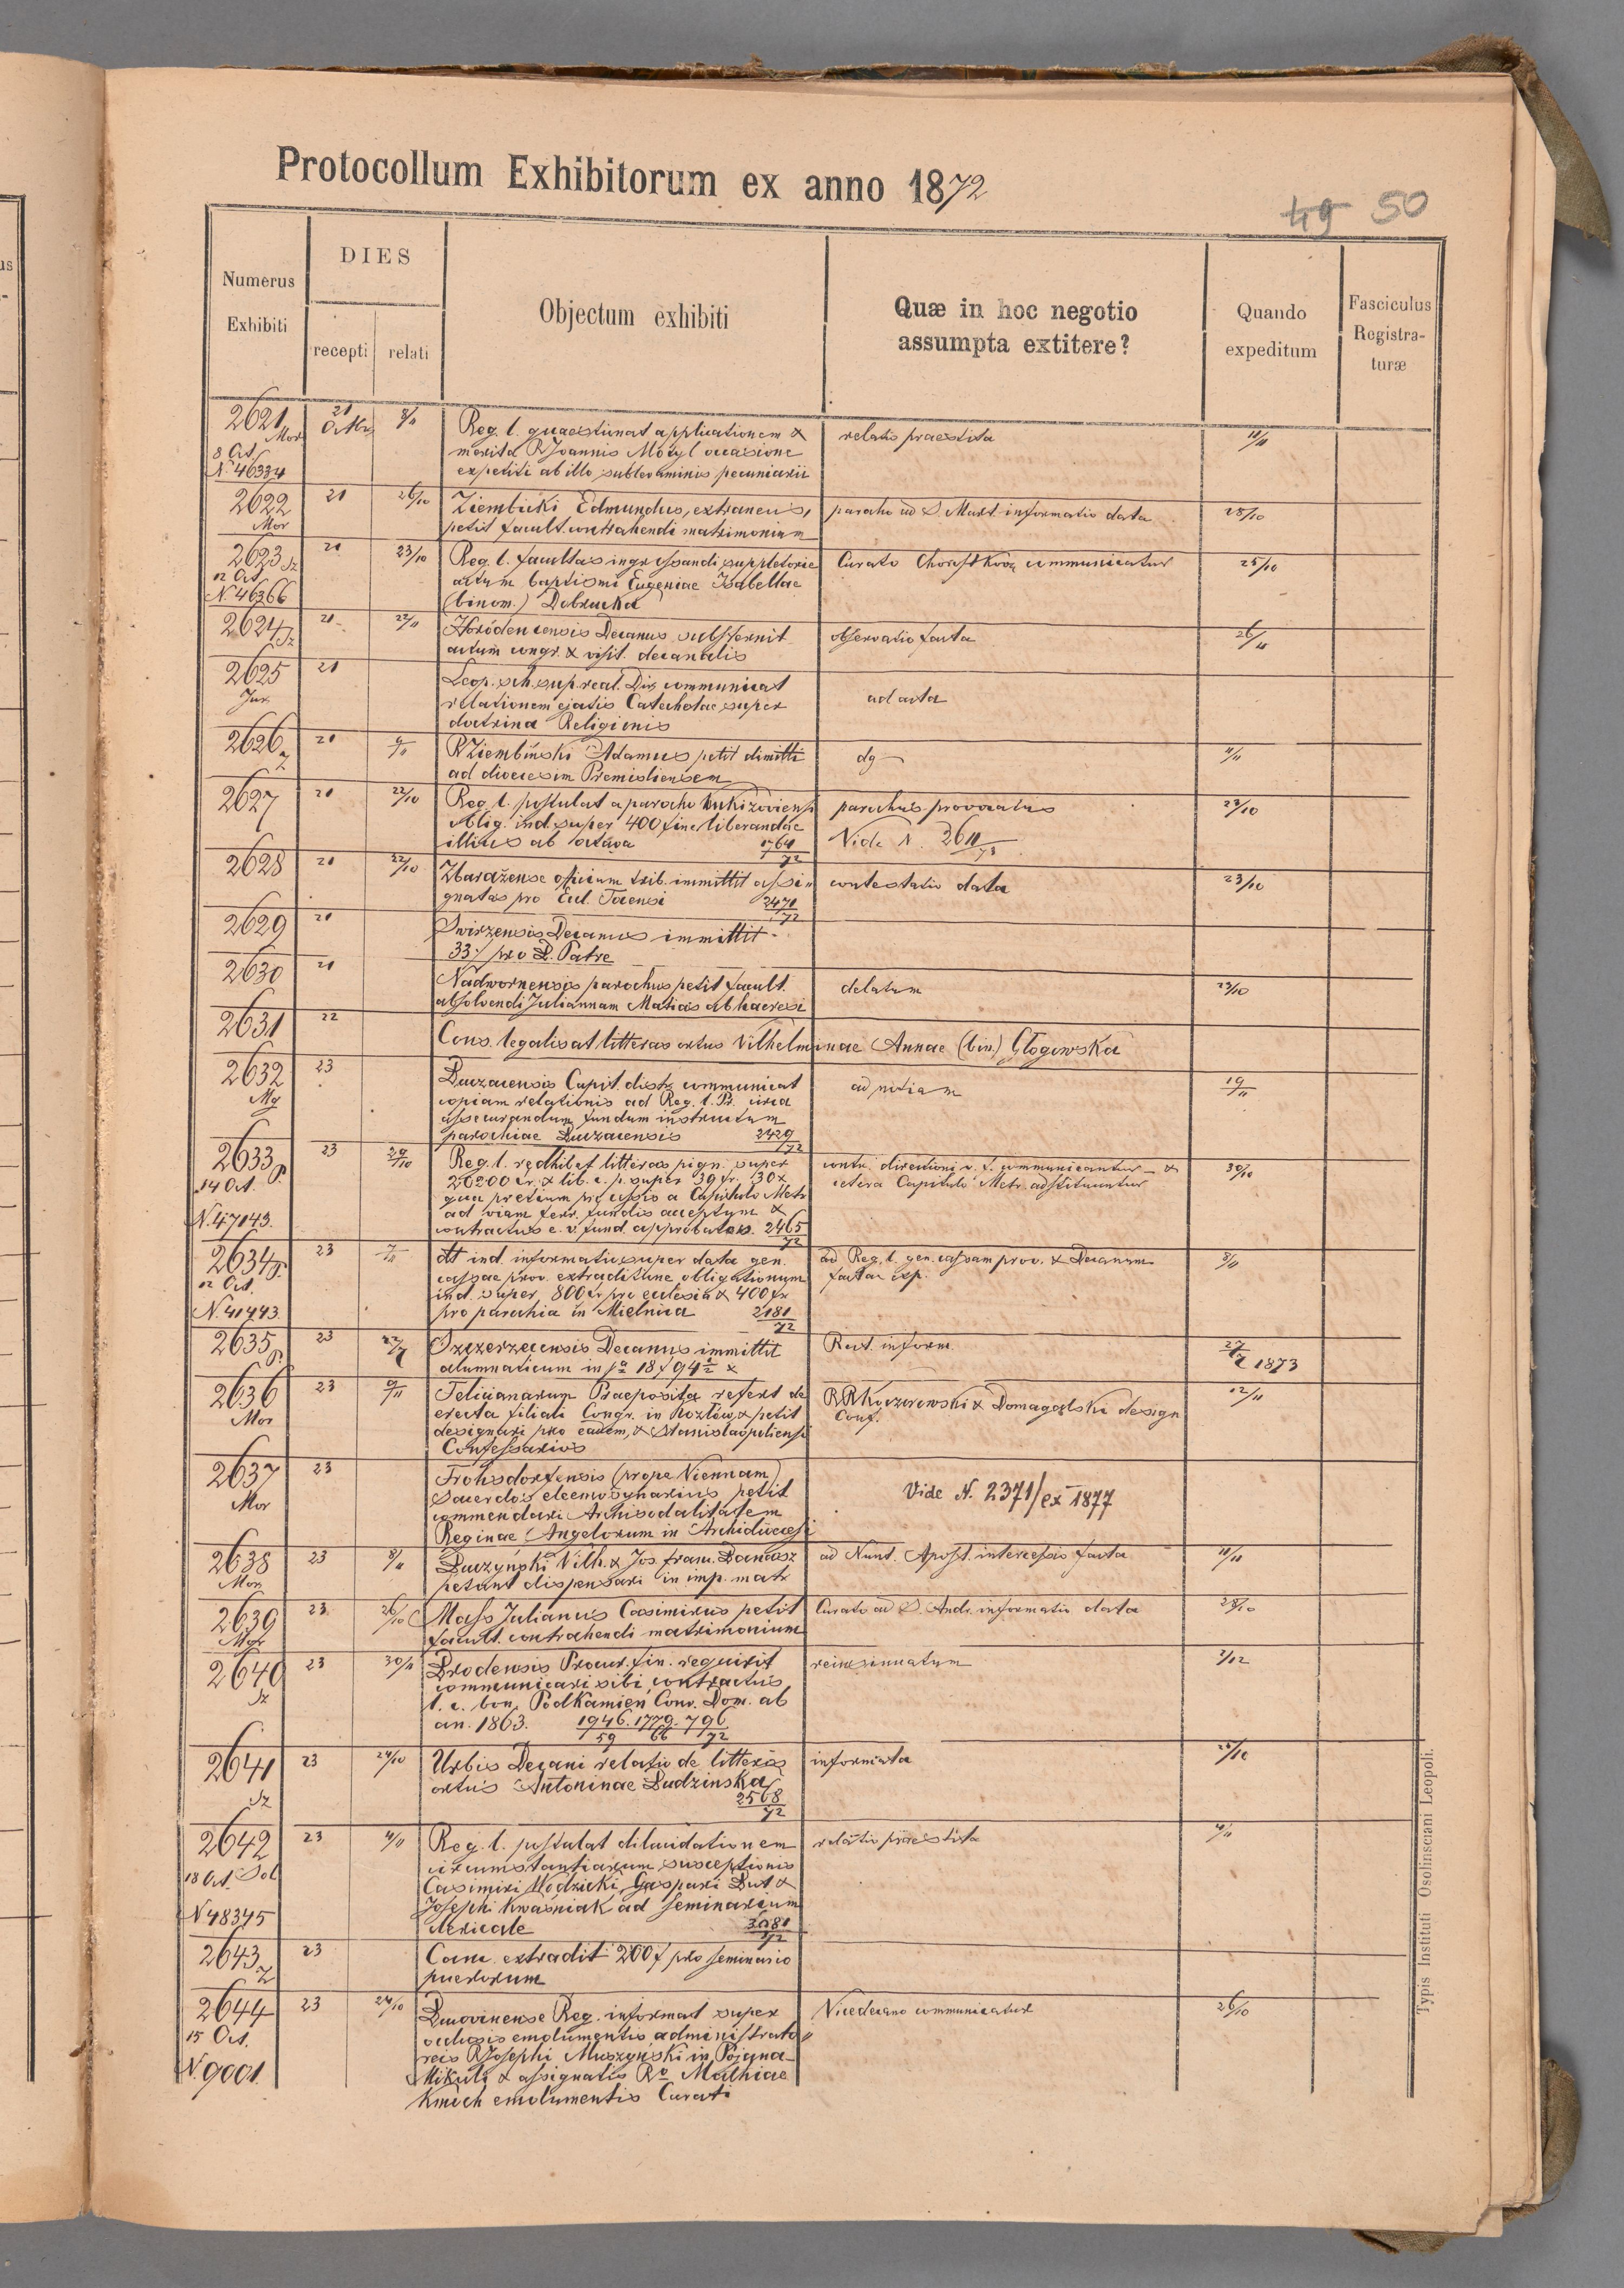 Protocollum Exhibitorum ex anno 1872
49 50
Numerus Exhibiti
DIES
recepti relati
Objectum exhibiti
Quæ in hoc negotio assumpta extitere?
Quando expeditum
Fasciculus Registra-turæ
2621 21 8/11 Reg. l. quaestionat applicationem & relatio praestita 11/11
Mor Octbr
8 Oct. merita R Joannis Motyl occasione
N. 46334 expetiti ab illo sublevaminis pecuniarii
2622 21 26/10 Ziembicki Edmundus, extraneus, parocho ad S. Mart. informatio data 28/10
Mor petit facult. contrahendi matrimonium
2623 Sz 21 23/10 Reg. l. facultas ingressandi suppletorie Curato communicatur 25/10
12 Oct. actum baptismi Eugeniae Isabellae
N. 46366 (binom.) Dobrucka
2624 Sz 21 22/11 Horódencensis Decanus substernit observatio facta 26/11
actum congr. & visit. decanalis
2625 21 Leop. sch. sup. real. Dir. communicat
Jux relationem ejatis Catechetae super ad acta
doctrina Religionis
2626 21 9/11 R Ziembiński Adamus petit dimitti dg 11/11
Z ad dioecesim Premisliensem
2627 21 22/10 Reg. l. postulat a parocho Kukizoviensi parochus provocatus 23/10
oblig. ind. super 400 f fine liberandae
illius ab octava 1761/72 Vide N. 2611/73
2628 21 22/10 Zbarażense officium trib. immittit assi= contestatio data 23/10
gnatas pro Eccl. Tocensi 2471/72
2629 21 Swirzensis Decanus immittit
33 f pro S. Patre
2630 21 Nadwornensis parochus petit facult. delatum 23/10
absolvendi Juliannam Matias ab haeresi
2631 22 Cons. legalisat litteras ortus Vilhelminae Annae (bin) Głogowska
2632 23 Buczacensis Capit. distr. communicat ad notiam 19/11
Mg copiam relationis ad Reg. l. Pr. circa
assecurandum fundum instructum
parochiae Buczacensis 2429/72
2633 P. 23 29/10 Reg. l. redhibet litteras pign. super contr. directioni v. f. communicantur & 30/10
14 Oct. 26200 fr. & lib. c. p. super 39 fr. 30x cetera Capitulo Metr. adstituuntur
qua pretium pro a Capitulo Metr.
N. 47143. ad viam ferr. fundis acceptum &
contractus e. v. fund. approbatos. 2465/72
2634 P. 23 7/11 At ind. informatio super data gen. ad Reg. l. gen. cassam prov. & Decanum 8/11
12 Oct. cassae prov. extraditione obligationum factae exp.
ind. super 800 fr pro ecclesia & 400 fr
N. 41443. pro parochia in Mielnica 2181/72
2635 P. 23 Szczerzecensis Decanus immittit Rect. inform. 1873
alumnaticum in 18 f 94½ x
2636 23 9/11 Felicianarum Praeposita refert de RR Koczerowski & Domagalski design 12/11
Mor erecta filiali Congr. in Kozłów, & petit Conf.
designari pro eadem, & Stanislaopoliensi
Confessarios
2637 23 Frohsdorfensis (prope Viennam)
Mor Sacerdos eleemosynarius petit Vide N. 2371/ex 1877
commendari Archisodalitatem
Reginae Angelorum in Archidioecesi
2638 23 8/11 Buczynski Vilh. & Jos. franc. Banasz ad Nunt. Apost. intercessio facta 11/11
Mor petunt dispensari in imp. matr
2639 23 26/10 Mass Julianus Casimirus petit Curato ad S. Andr. informatio data 28/10
Mor facult. contrahendi matrimonium
2640 23 30/11 Brodensis Procur. fin. requirit reinsinuatum 2/12
Sz communicari sibi contractus
l. c. bon. Podkamień Conv. Dom. ab
an. 1863. 1946/59. 1779/66. 796/72
2641 23 24/10 Urbis Decani relatio de litteris informata 25/10
Sz ortus Antoninae Budzinska 2568/72
2642 23 4/11 Reg. l. postulat dilucidationem relatio praestita 4/11
circumstantiarum susceptionis
18 Oct. Sol Casimiri Wodzicki, Gaspari But &
Josephi Kwaśniak ad Seminarium
N 48345 clericale 3081/72
2643 23 Canc. extradit 200 f pro Seminario
Z puerorum
2644 23 24/10 Bucovinense Reg. informat super Vicedecano communicatur 26/10
15 Oct. oclusis emolumentis administrato=
reis R Josephi Muszyński in Pojana-
N. 9001. Mikuli & assignatis Ro Mathiae
Kmich emolumentis Curati
Typis Instituti Ossolinsciani Leopoli.